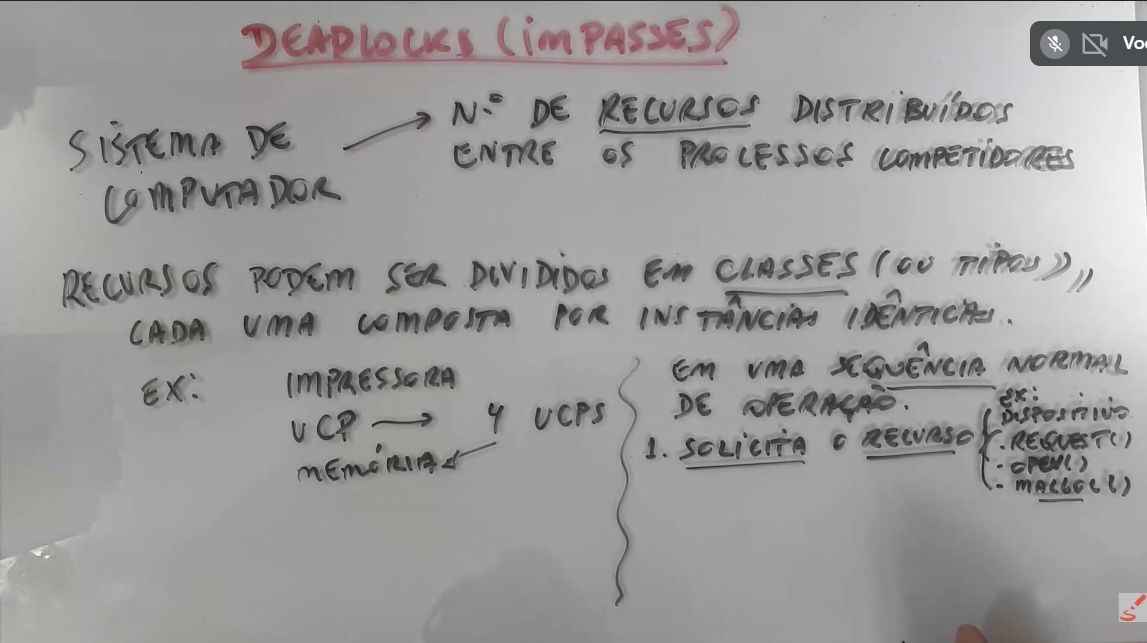 DEADLOCKS (IMPASSES)
SISTEMA DE
COMPUTADOR
N.º DE RECURSOS DISTRIBUÍDOS
ENTRE OS PROCESSOS COMPETIDORES
RECURSOS PODEM SER DIVIDIDOS EM CLASSES (OU TIPOS),
CADA UMA COMPOSTA POR INSTÂNCIAS IDÊNTICAS.
EX: IMPRESSORA
UCP → 4 UCPS
MEMÓRIA
EM UMA SEQUÊNCIA NORMAL
DE OPERAÇÃO.
1. SOLICITA O RECURSO
EX:
DISPOSITIVO
. REQUEST()
. OPEN()
. MALLOC()
Vo